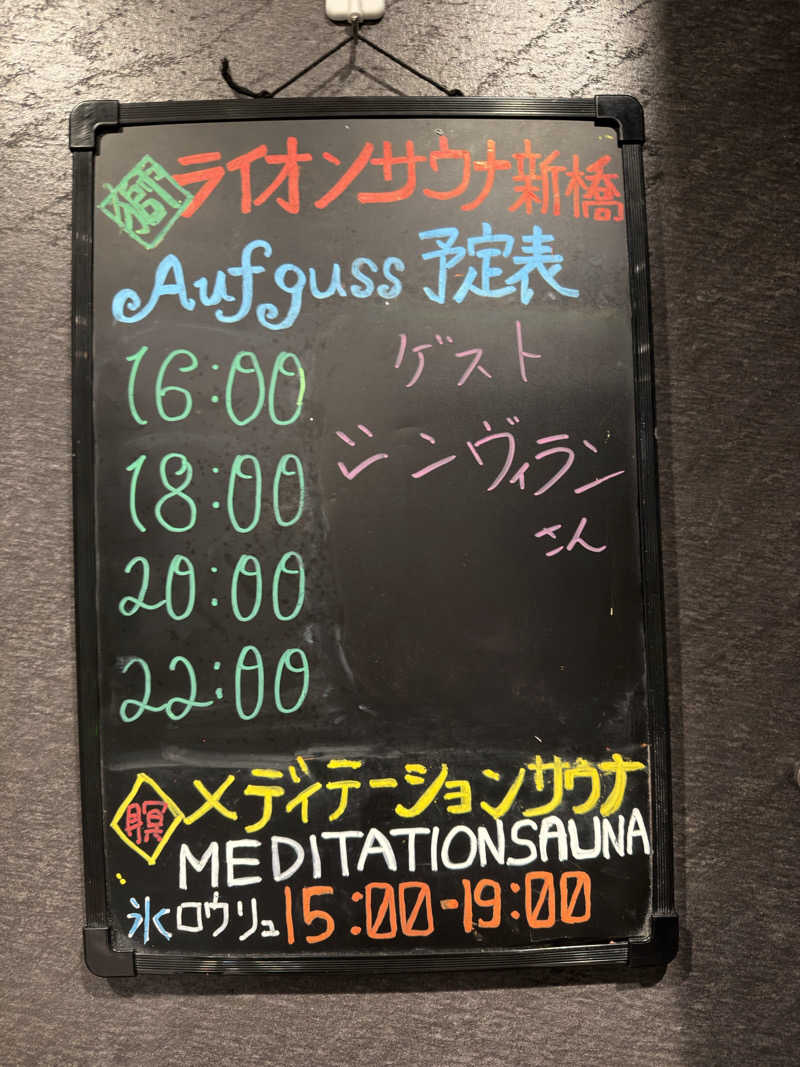 獅 ライオンサウナ新橋
Aufguss 予定表
16:00 ゲスト
18:00 シンヴィラン
さん
20:00
22:00
瞑 メディテーションサウナ
MEDITATIONSAUNA
氷ロウリュ 15:00-19:00